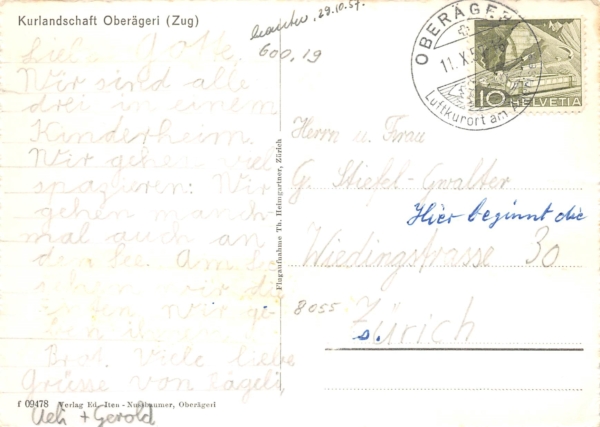 Kurlandschaft Oberägeri (Zug)
29.10.57.
600,19
OBERÄGERI
11.X.5
Luftkurort am
10 HELVETIA
Liebe Gotte.
Wir sind alle
drei in einem
Kinderheim.
Wir gehen viel
spazieren. Wir
gehen manch
mal auch an
den See. Am
wir die
Enten. Wir ge
ben ihnen
Brot. Viele liebe
Grüsse von
Ueli + Gerold
Flugaufnahme Th. Heimgartner, Zürich
Herrn u. Frau
G. Stiefel-Gwalter
Hier beginnt die
Wiedingstrasse 30
8055 Zürich
f 09478 Verlag Ed. Iten - Nussbaumer, Oberägeri